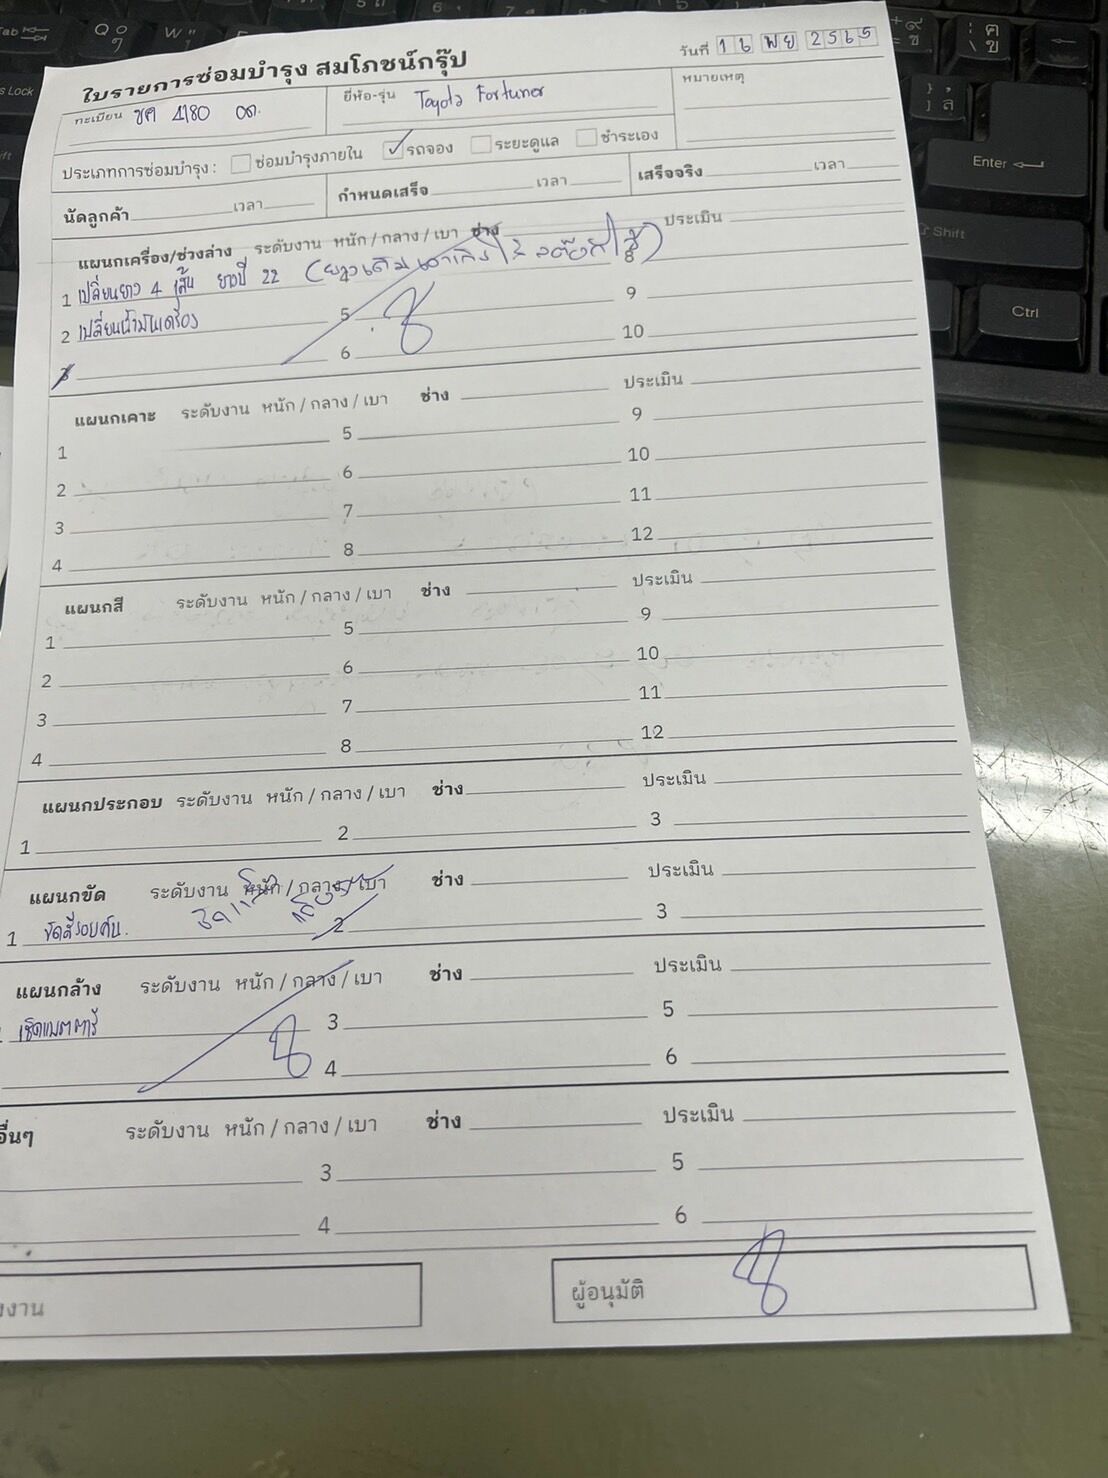 ใบรายการซ่อมบำรุง สมโภชน์กรุ๊ป
วันที่ 16 พย 2565
ทะเบียน ขค 4180 อด.
ยี่ห้อ-รุ่น Toyota Fortuner
หมายเหตุ
ประเภทการซ่อมบำรุง : ซ่อมบำรุงภายใน ✓ รถจอง ระยะดูแล ชำระเอง
นัดลูกค้า เวลา กำหนดเสร็จ เวลา เสร็จจริง เวลา
แผนกเครื่อง/ช่วงล่าง ระดับงาน หนัก / กลาง / เบา ช่าง ประเมิน
1 เปลี่ยนยาง 4 เส้น ยางปี 22 (ยางเดิม 8
2 เปลี่ยนน้ำมันเครื่อง 5 9
3 6 10
แผนกเคาะ ระดับงาน หนัก / กลาง / เบา ช่าง ประเมิน
1 5 9
2 6 10
3 7 11
4 8 12
แผนกสี ระดับงาน หนัก / กลาง / เบา ช่าง ประเมิน
1 5 9
2 6 10
3 7 11
4 8 12
แผนกประกอบ ระดับงาน หนัก / กลาง / เบา ช่าง ประเมิน
1 2 3
แผนกขัด ระดับงาน หนัก / กลาง / เบา ช่าง ประเมิน
1 ขัดสีรอบคัน. 2 3
แผนกล้าง ระดับงาน หนัก / กลาง / เบา ช่าง ประเมิน
เช็คแบตตารี่ 3 5
4 6
อื่นๆ ระดับงาน หนัก / กลาง / เบา ช่าง ประเมิน
3 5
4 6
งาน
ผู้อนุมัติ
Tab
Q
W
Enter
Shift
Ctrl